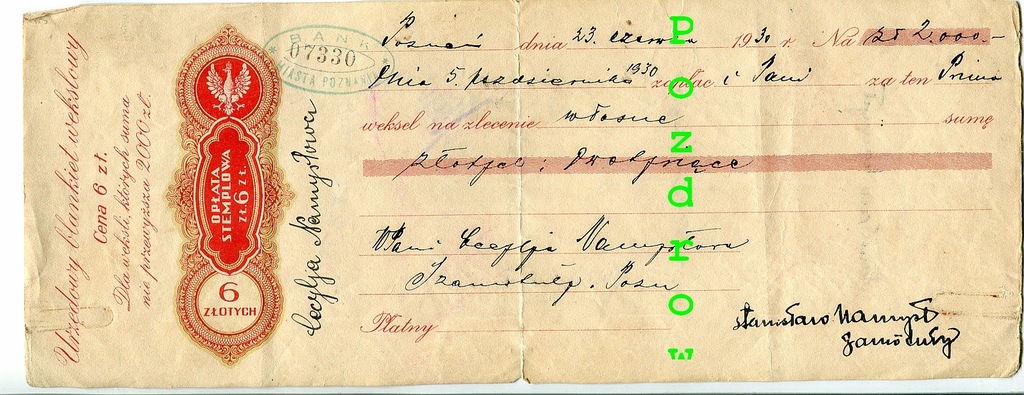 Urzędowy blankiet wekslowy
Cena 6 zł.
Dla weksli, których suma
nie przewyższa 2000 zł.
OPŁATA
STEMPLOWA
ZŁ. 6 ZŁ.
6
ZŁOTYCH
Cecylja Namysłowa
BANK
07330
MIASTA POZNANIA
Poznań dnia 23. czerwca 1930 r. Na zł 2.000.-
Dnia 5. października 1930 zapłaci Pani za ten Prima
weksel na zlecenie własne sumę
złotych: dwatysiące
Pani Cecylja Namysłowa
Płatny
Stanisław Namysł
Pozdrow